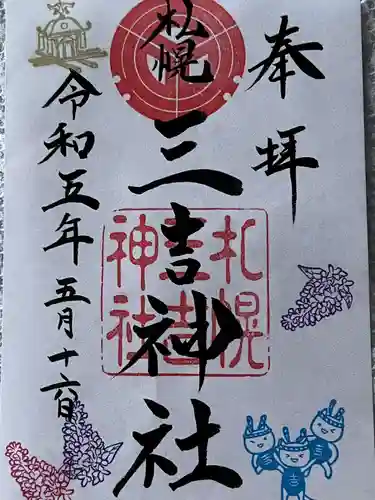 奉拝
札幌
三吉神社
札幌
三吉
神社
令和五年五月十六日
吉